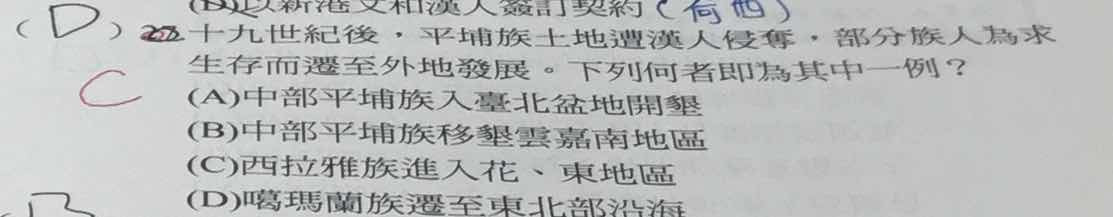 (B)以新港文和漢人簽訂契約(荷西)
(D)十九世紀後,平埔族土地遭漢人侵奪,部分族人為求
生存而遷至外地發展。下列何者即為其中一例?
C
(A)中部平埔族入臺北盆地開墾
(B)中部平埔族移墾雲嘉南地區
(C)西拉雅族進入花、東地區
(D)噶瑪蘭族遷至東北部沿海
B